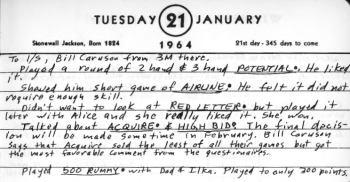 TUESDAY 21 JANUARY
Stonewall Jackson, Born 1824
1964
21st day - 345 days to come
To I/S, Bill Caruson from 3M there.
Played a round of 2 hand & 3 hand POTENTIAL. He liked
it.
Showed him short game of AIRLINE. He felt it did not
require enough skill.
Didn't want to look at RED LETTER but played it
later with Alice and she really liked it. She won.
Talked about ACQUIRE & HIGH BID. The final decis-
ion will be made some time in February. Bill Caruson
says that Acquire sold the least of all their games but got
the most favorable comment from the questionaires.
Played 500 RUMMY with Dad & Ilka. Played to only 200 points.